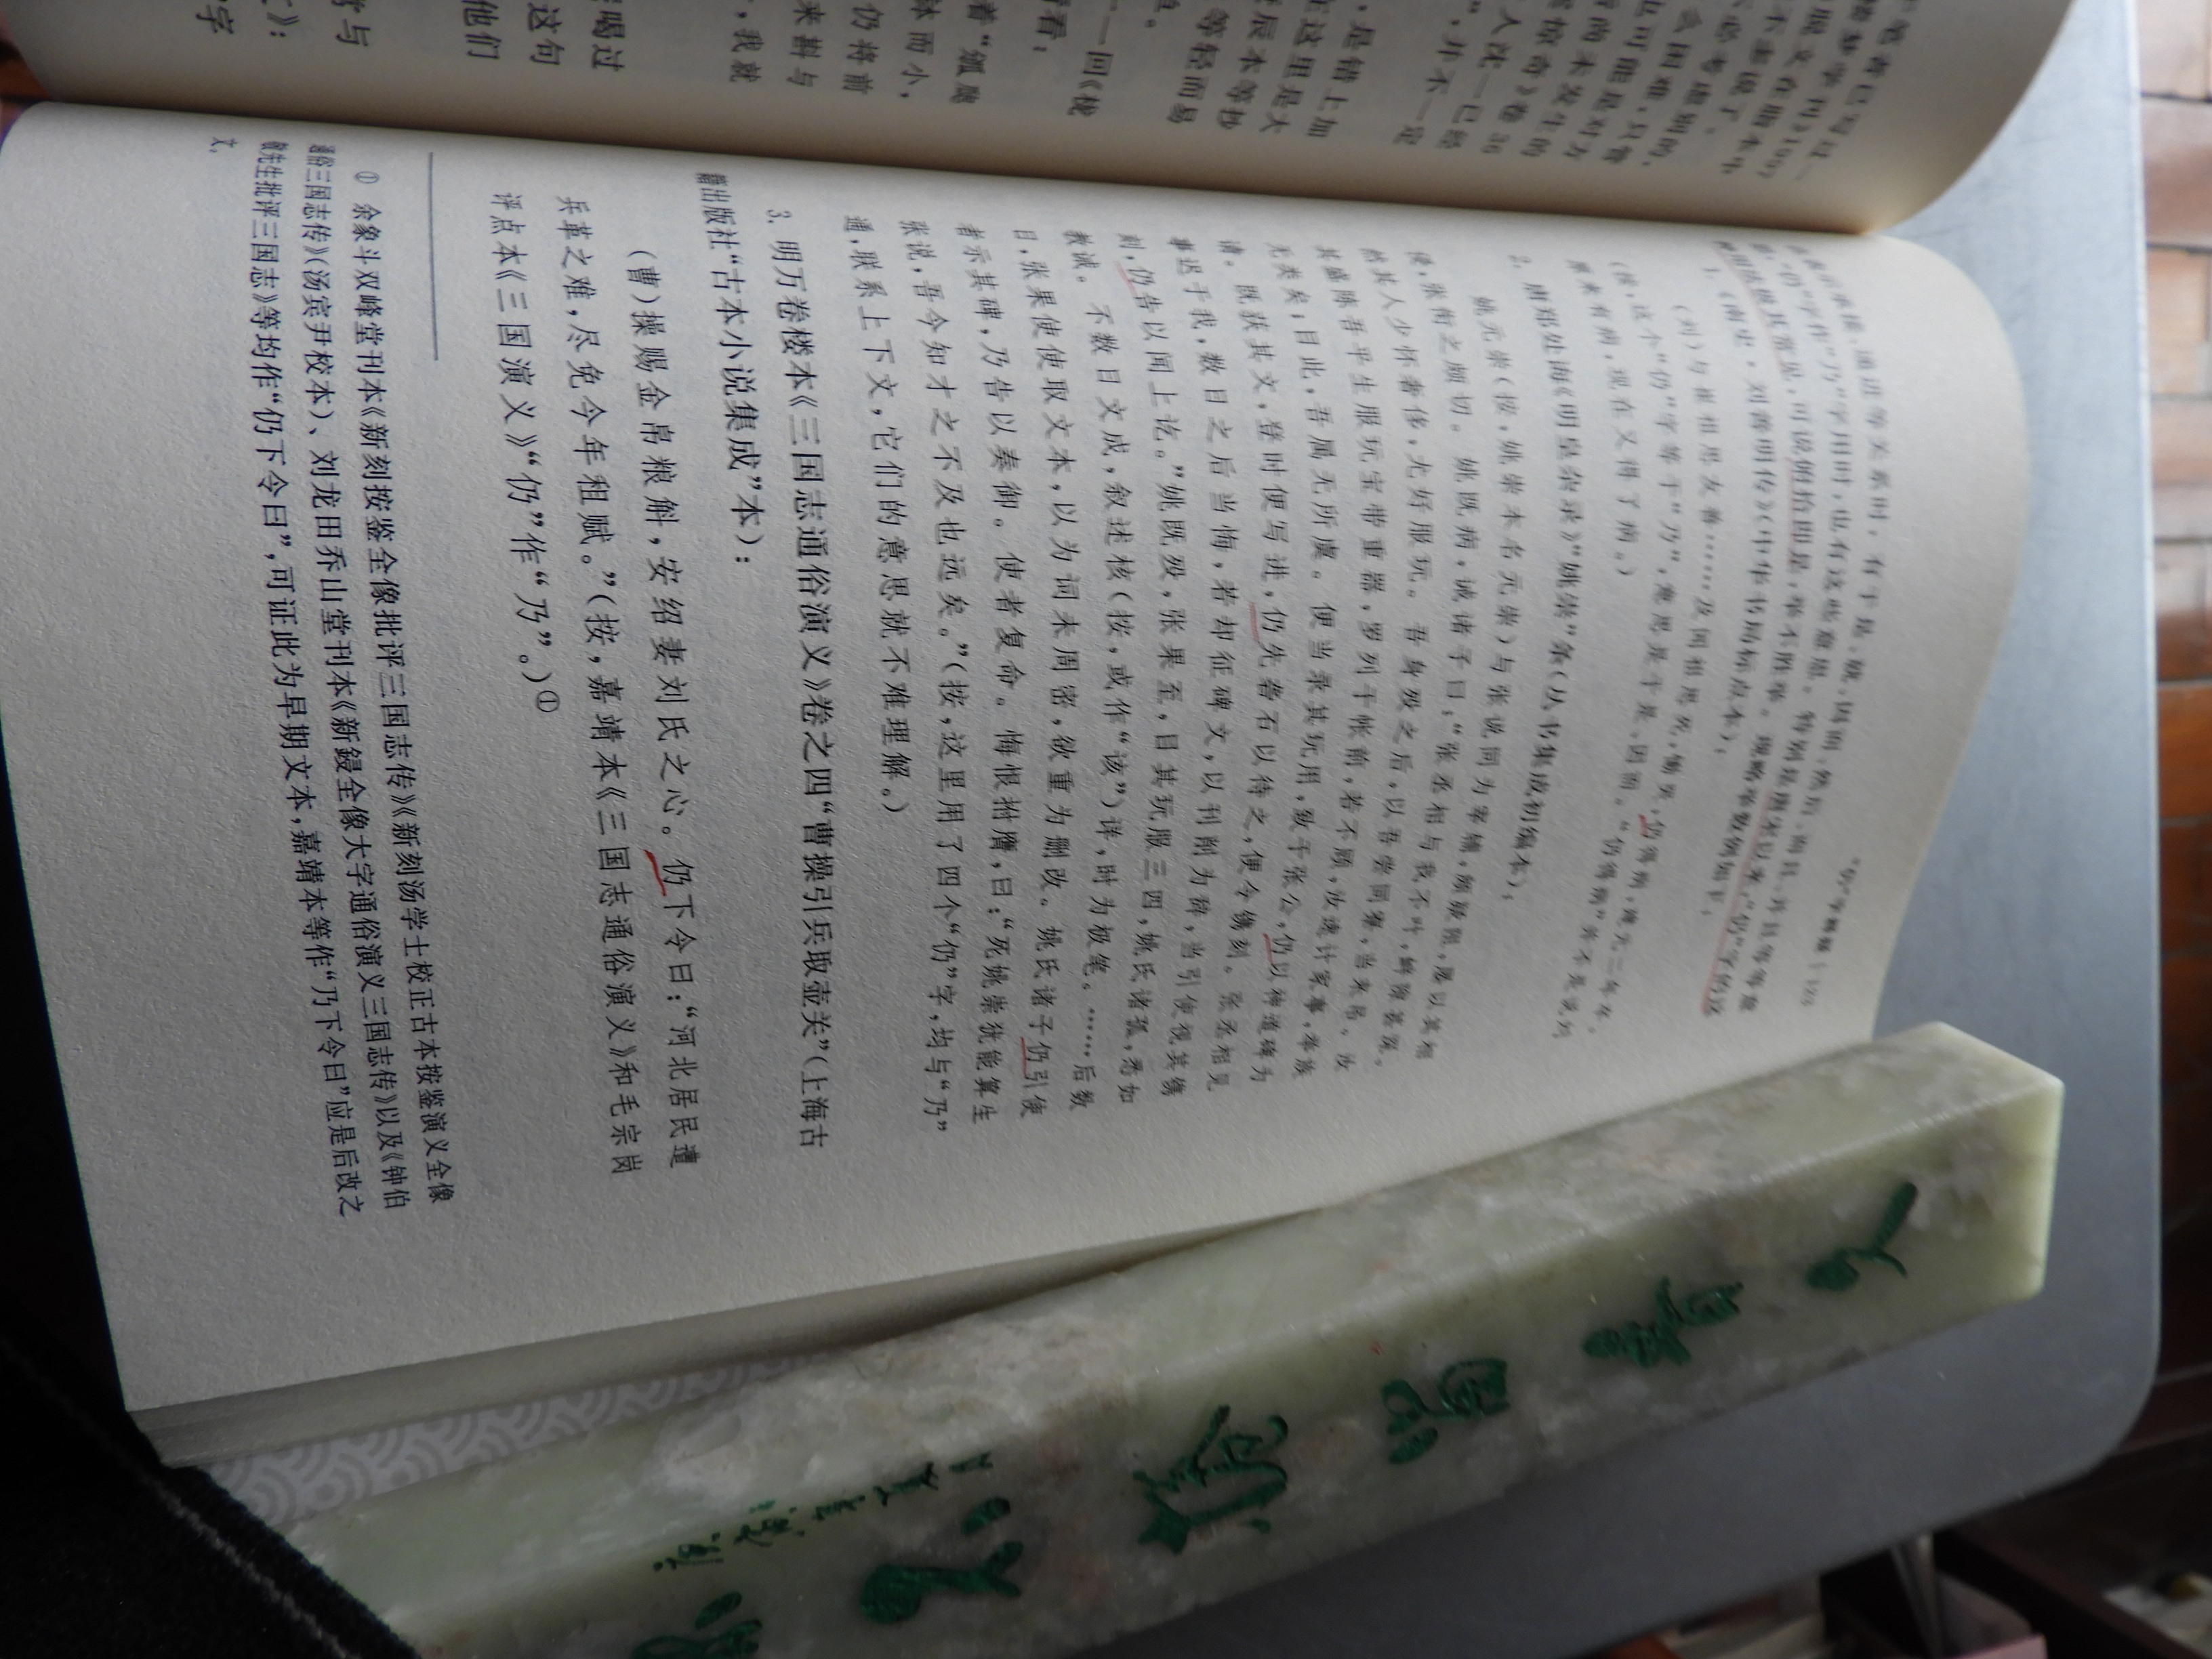 笔者已写过一
么困难，只管
也可能是对方
育的未发生的
惊奇》卷36
人次一已给
”，并不一定
，是错上加
这里是大
辰本等抄
等轻而易
“一回《栊
看看：
着“瓟斝
钵而小，
仍将前
来斟与
，我就
喝过
这句
他们
常与
》：
字
思。“仍”字作“乃”字用时，也有这些意思。特别是唐宋以来，“仍”字的这
种用法极其常见，可说俯拾即是，举不胜举。现略举数例如下：
1.《南史·刘善明传》（中华书局标点本）：
（刘）与崔祖思友善……及闻祖思死，恸哭，仍得病，建元二年卒。
（按，这个“仍”字等于“乃”，意思是于是、因而。“仍得病”并不是说刘
原来有病，现在又得了病。）
2. 唐郑处诲《明皇杂录》“姚崇”条（丛书集成初编本）：
姚元崇（按，姚崇本名元崇）与张说同为宰辅，颇疑阻，屡以其相
侵，张衔之颇切。姚既病，诫诸子曰：“张丞相与我不叶，衅隙甚深。
然其人少怀奢侈，尤好服玩。吾身殁之后，以吾尝同寮，当来吊。汝
其盛陈吾平生服玩宝带重器，罗列于帐前，若不顾，汝速计家事，举族
无类矣；目此，吾属无所虞。便当录其玩用，致于张公，仍以神道碑为
请。既获其文，登时便写进，仍先砻石以待之，便令镌刻。张丞相见
事迟于我，数日之后当悔，若却征碑文，以刊削为辞，当引使视其镌
刻，仍告以闻上讫。”姚既殁，张果至，目其玩服三四，姚氏诸孤，悉如
教诫。不数日文成，叙述核（按，或作“该”）详，时为极笔。……后数
日，张果使使取文本，以为词未周密，欲重为删改。姚氏诸子仍引使
者示其碑，乃告以奏御。使者复命。悔恨拊膺，曰：“死姚崇犹能算生
张说，吾今知才之不及也远矣。”（按，这里用了四个“仍”字，均与“乃”
通，联系上下文，它们的意思就不难理解。）
3. 明万卷楼本《三国志通俗演义》卷之四“曹操引兵取壶关”（上海古
籍出版社“古本小说集成”本）：
（曹）操赐金帛粮斛，安绍妻刘氏之心。仍下令曰：“河北居民遭
兵革之难，尽免今年租赋。”（按，嘉靖本《三国志通俗演义》和毛宗岗
评点本《三国演义》“仍”作“乃”。）①
① 余象斗双峰堂刊本《新刻按鉴全像批评三国志传》《新刻汤学士校正古本按鉴演义全像
通俗三国志传》（汤宾尹校本）、刘龙田乔山堂刊本《新鋟全像大字通俗演义三国志传》以及《钟伯
敬先生批评三国志》等均作“仍下令曰”，可证此为早期文本，嘉靖本等作“乃下令曰”应是后改之
文。